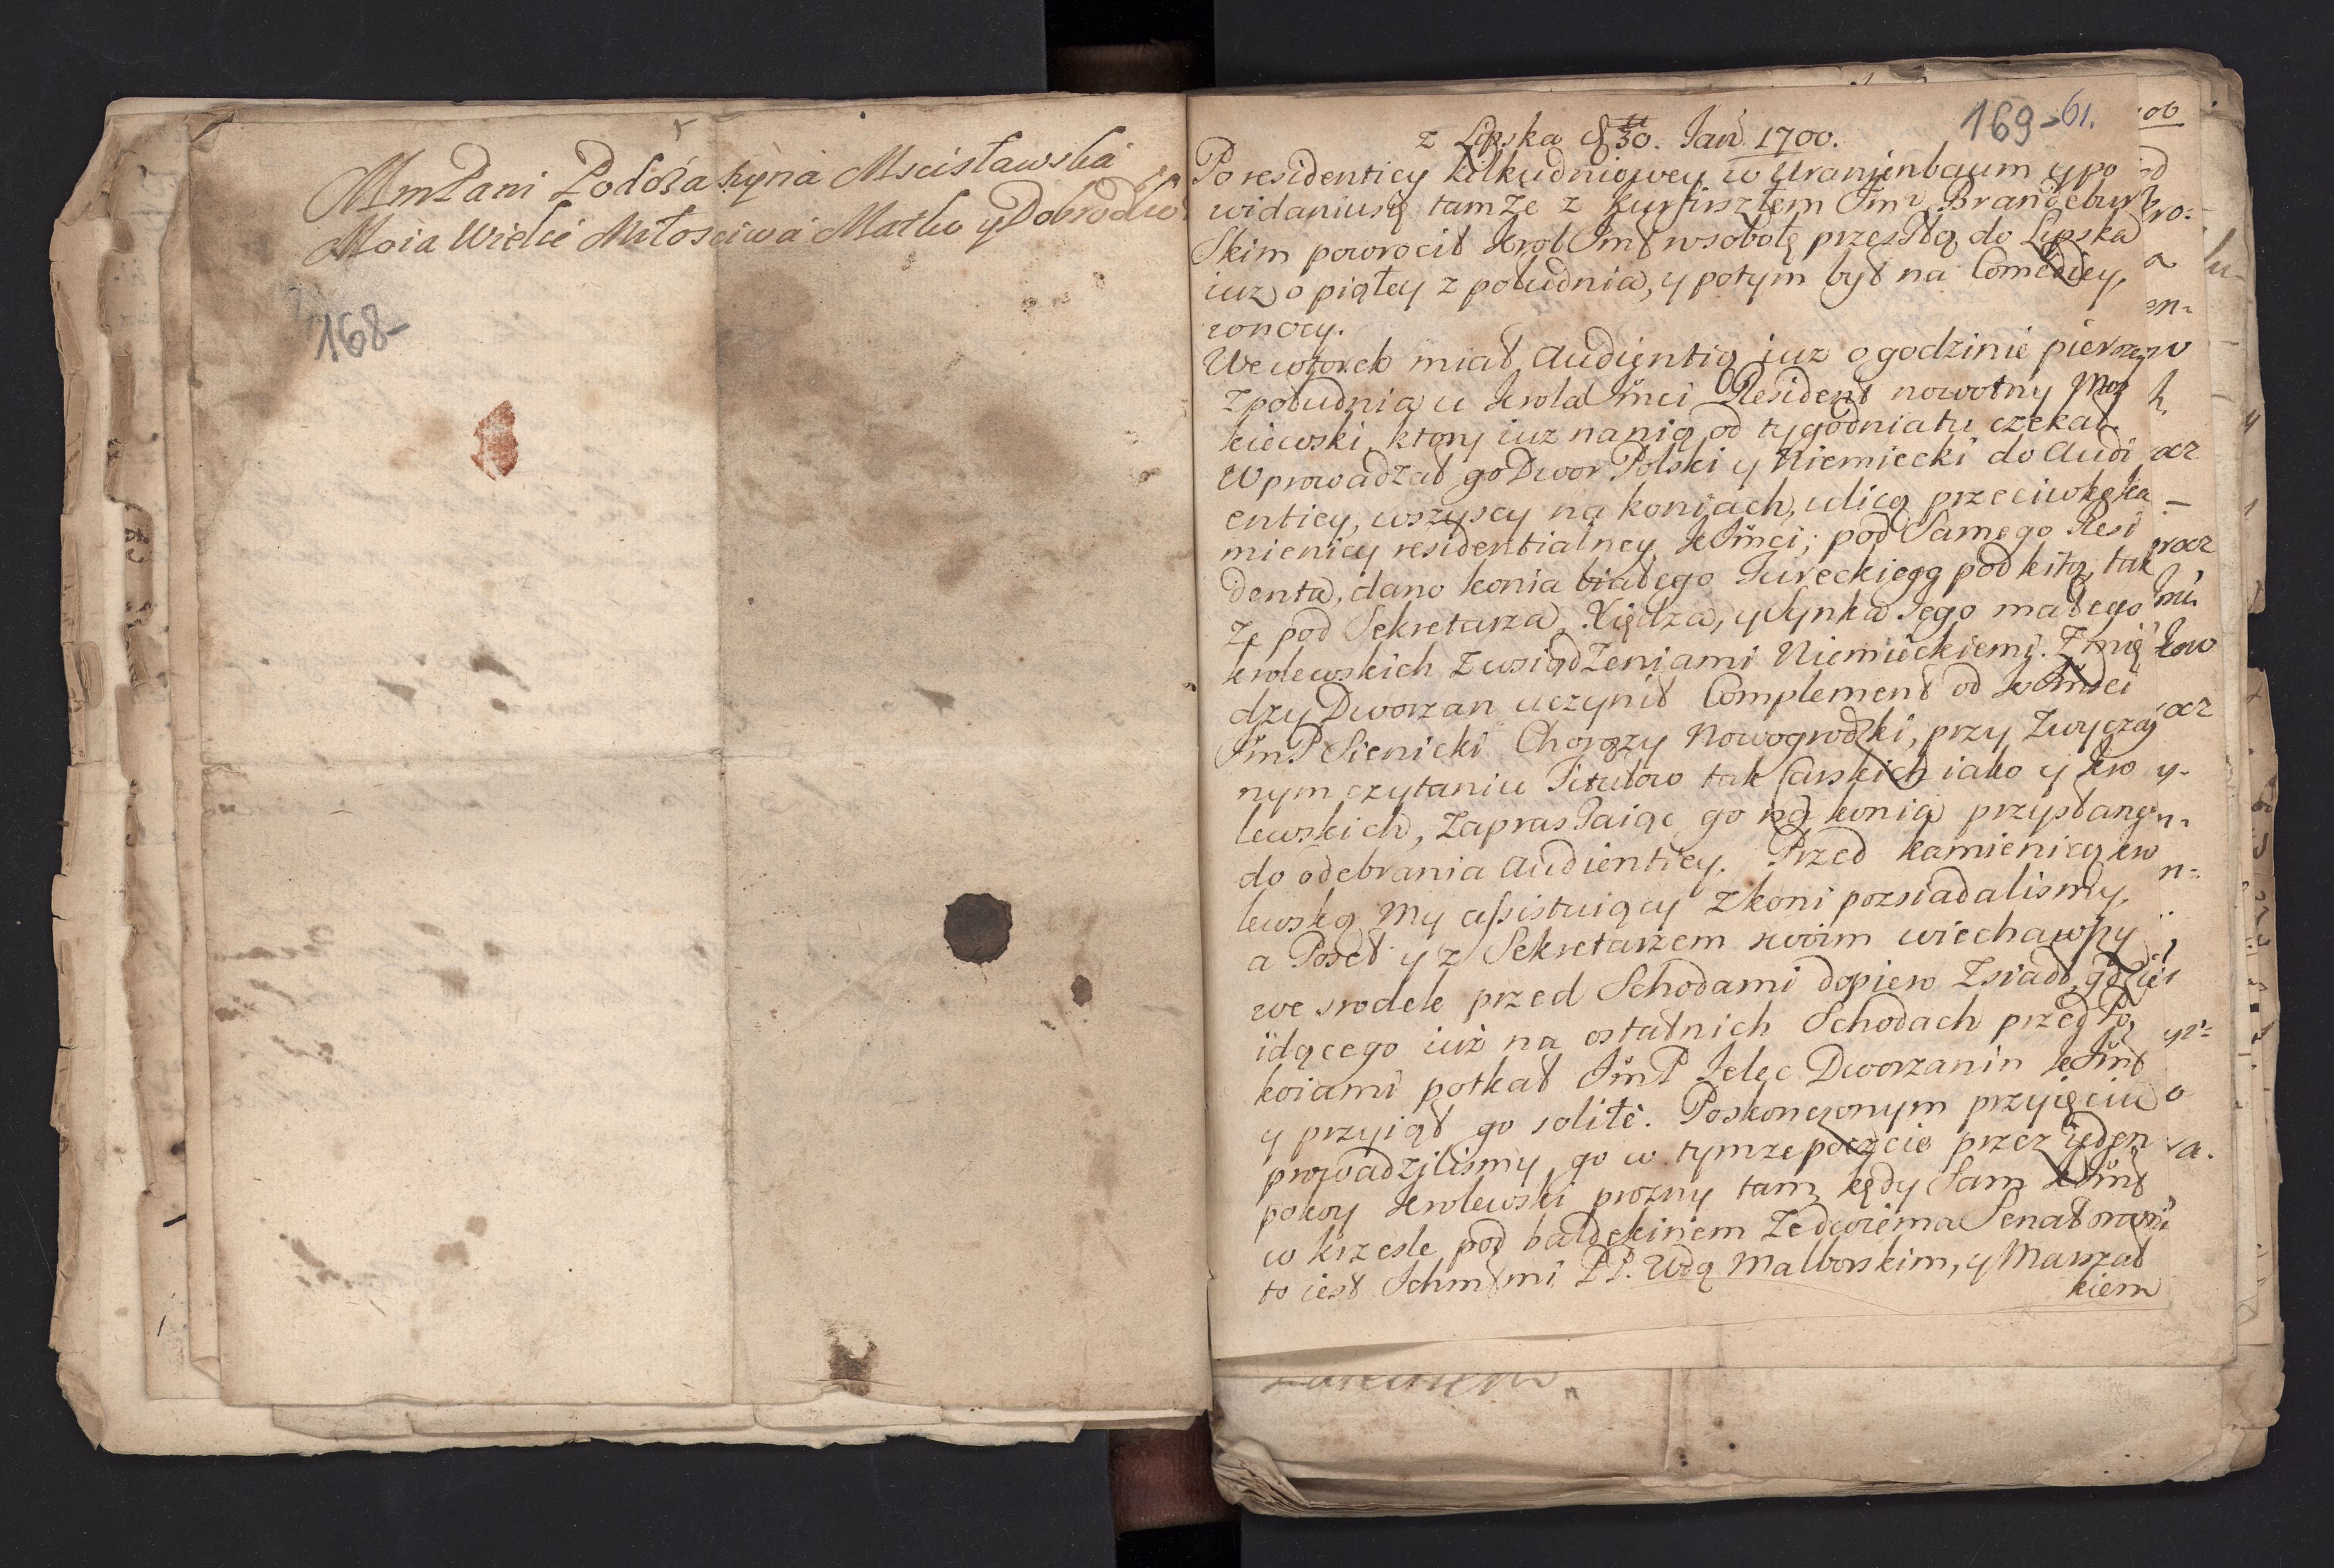 MmPani Podstaszyna Mscisławska
Moia Wielcé Miłosciwa Matko y Dobrodko
168-
169-
61.
z Lipska d. 30. Jan. 1700.
Po residentiey kilkudniowey w Uranienbaum y po
widaniusię tamże z Kurfirsztem Jm Brandebur
skim powrocił Krol Jmć w sobotę przeszłą do Lipska
iuz o piątey z południa, y potym był na Comediey,
w nocy.
We wtorek miał Audientią iuz o godzinie pierszey
z południa u Krola Jmci Resident nowotny Mos
kiewski, ktory iuz na nią od tygodnia tu czekał.
Wprowadzał go Dwor Polski y Niemiecki do Audi
entiey, wszyscy na koniach, ulicą przeciwko ka
mienicy residentialney KJmci; pod Samego Resi
denta, dano konia białego Tureckiego pod kitą, tak
ze pod Sekretarza, Xiędza, y Synka Jego małego
krolewskich z wsiądzeniami Niemieckiemi. Z mię
dzy Dworzan uczynił Complement od KJmsci
JmP Sienicki Chorązy Nowogrodzki, przy zwyczay
nym czytaniu Titułow tak Carskich iako y Kro
lewskich, zapraszaiąc go na konia przysłane
do odebrania Audientiey. Przed kamienicą kro
lewską My assistuiący z koni pozsiadalismy,
a Poseł y z Sekretarzem swoim wiechawszy
we srodek przed Schodami dopiero zsiadł, gdzie
idącego iuż na ostatnich Schodach przed Po
koiami potkał JmP Jelec Dworzanin KJmć
y przyiął go solitè. Poskonczonym przyięciu
prowadzilismy go w tymze poczcie przez ieden
pokoy Krolewski prozny tam kędy Sam KJmć
w krzesle pod baldekinem ze dwiema Senatorami
to iest Ichmćmi PP. Wdą Malborskim, y Marszał
kiem